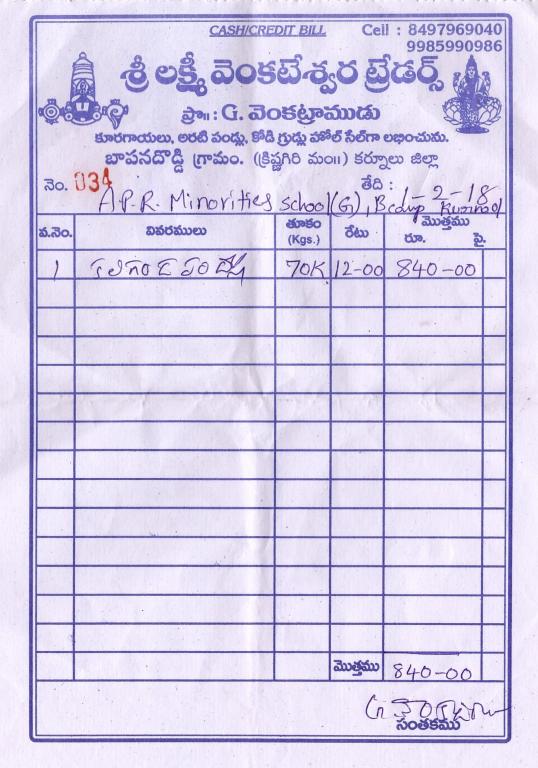 CASH/CREDIT BILL
Cell : 8497969040
9985990986
శ్రీ లక్ష్మీ వెంకటేశ్వర ట్రేడర్స్
ప్రొ॥ : G. వెంకట్రాముడు
కూరగాయలు, అరటి పండ్లు, కోడి గ్రుడ్లు హోల్ సేల్‌గా లభించును.
బాపనదొడ్డి గ్రామం. (క్రిష్ణగిరి మం॥) కర్నూలు జిల్లా
నెం. 034 తేది : 1-2-18
A.P.R. Minorities School (G), Kurnool
వ.నెం. వివరములు తూకం (Kgs.) రేటు మొత్తము రూ. పై.
1 70K 12-00 840-00
మొత్తము 840-00
సంతకము